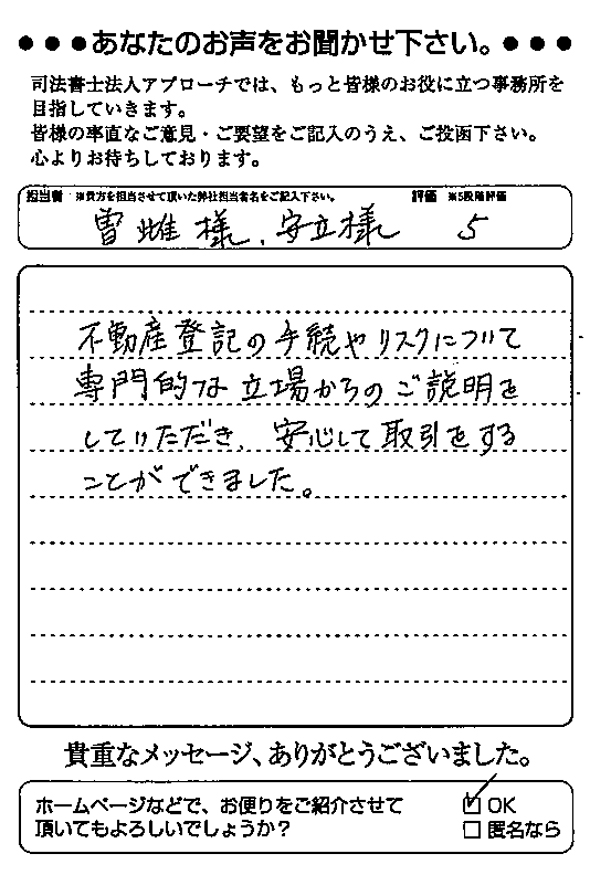 ●●●あなたのお声をお聞かせ下さい。●●●
司法書士法人アプローチでは、もっと皆様のお役に立つ事務所を
目指していきます。
皆様の率直なご意見・ご要望をご記入のうえ、ご投函下さい。
心よりお待ちしております。
担当者 ※貴方を担当させて頂いた弊社担当者名をご記入下さい。 評価 ※5段階評価
曽雌様、安立様 5
不動産登記の手続やリスクについて
専門的な立場からのご説明を
していただき、安心して取引をする
ことができました。
貴重なメッセージ、ありがとうございました。
ホームページなどで、お便りをご紹介させて ☑ OK
頂いてもよろしいでしょうか? □ 匿名なら